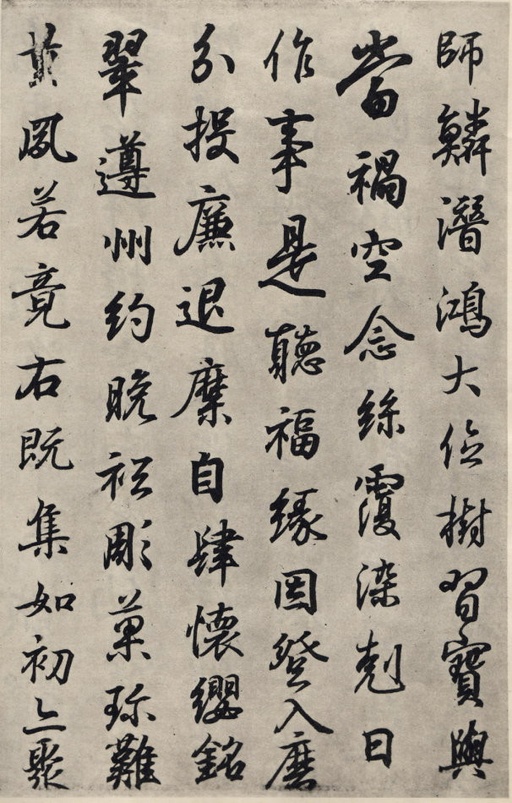 師鱗潛鴻大位樹習寶與
當禍空念絲覆染剋日
作事是聽福緣因登入
分投廉退糜自肆懷纓銘
翠遵州約晚彫菓珍難
鳳若竟右既集如初亦聚